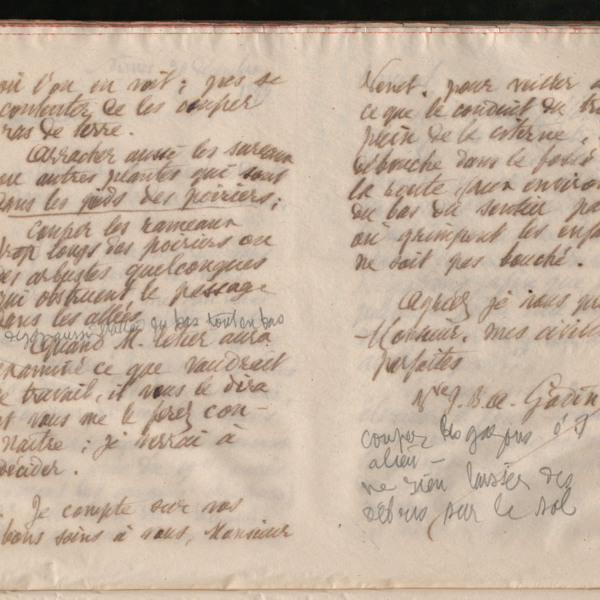 où l'on en voit ; pas se
contenter de les couper
ras de terre.
Arracher aussi les sureaux
ou autres plantes qui sont
dans les pieds des poiriers ;
Couper les rameaux
trop longs des poiriers ou
des arbustes quelconques
qui obstruent le passage
dans les allées
du bas tout en bas
Quand M. Lelier aura
examiné ce que vaudrait
le travail, il vous le dira
et vous me le ferez con-
naître ; je verrai à
décider.
Je compte sur vos
bons soins à vous, Monsieur
Nenet, pour veiller à
ce que le conduit du tr
plein de la citerne,
débouche dans le fossé
la route, aux environ
du bas du sentier pa
où grimpent les enfa
ne soit pas bouché.
Agréez je vous pri
Monsieur, mes civili
parfaites
Vve J. B. A. Godin
couper les gazons
ne rien laisser des
débris sur le sol